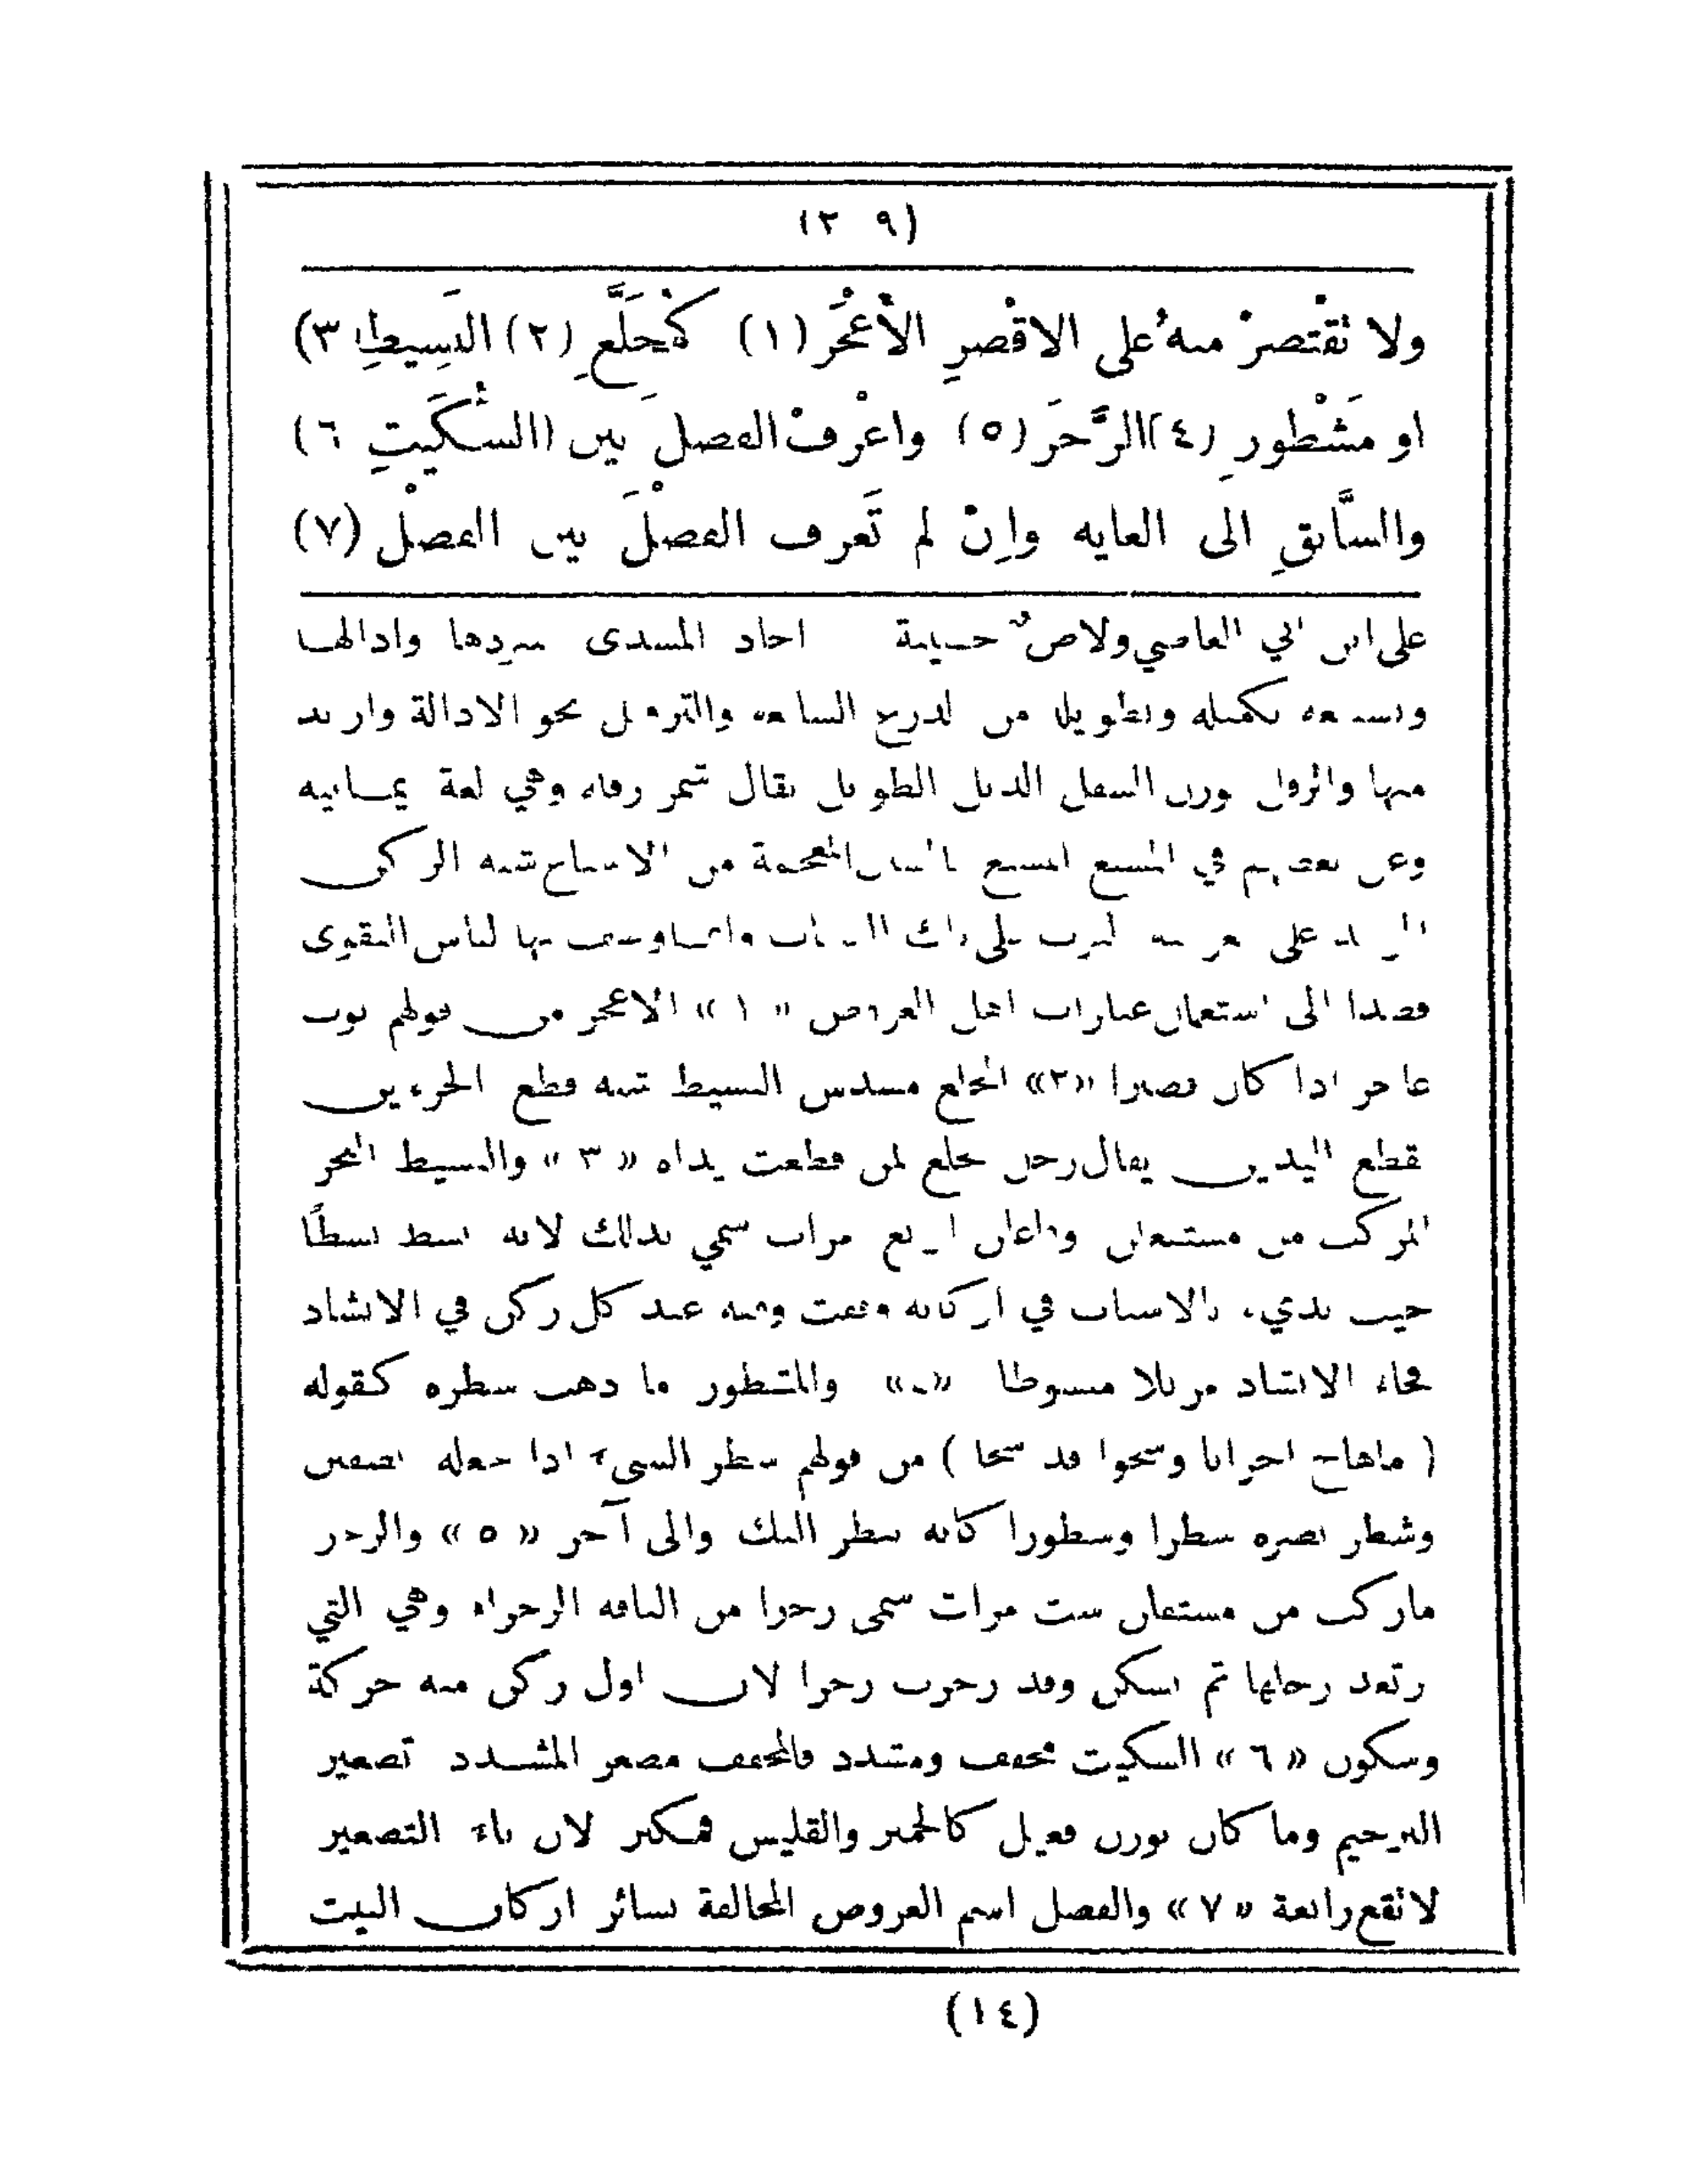 (٢٠٩)
ولا تقْتصرْ منهُ على الاقْصرِ الأَعْجَر (١) كمُخَلَّعِ (٢) البَسِيطِ (٣)
او مَشْطورِ (٤) الرَّجَز (٥) واعْرفْ الفصلَ بين (السُّكَيتِ ٦)
والسَّابقِ الى الغايه وإنْ لم تَعرف الفصْلَ بين الفصْل (٧)
على ابن ابي العاصي ولاص حصينة اجاد المسدى سردها واذالها
تكميله وتطويل من الدرع السابغه والترفيل نحو الاذالة وازيد
منها والرفل بوزن السفل الذيل الطويل يقال شمر رفله وهي لغة يمانيه
وعن بعضهم في المسبغ المعجمة من الاسباغ شبه الركن
على لباس التقوى
قصدا الى استعمال عبارات اهل العروض «١» الاعجر من قولهم ثوب
عاجر اذا كان قصيرا «٢» المخلع مسدس البسيط شبه قطع الجزءين
قطع اليدين يقال رجل مخلع لمن قطعت يداه «٣» والبسيط البحر
المركب من مستفعلن وفاعلن اربع مرات سمي بذلك لانه بسط بسطًا
حيث بدىء بالاسباب في اركانه ووقعت وقفه عند كل ركن في الانشاد
فجاء الانشاد مرتلا مبسوطا «٤» والمشطور ما ذهب شطره كقوله
( ماهاج احزانا وشجوا قد شجا ) من قولهم شطر الشىء اذا جعله نصفين
وشطر بصره شطرا وشطورا كانه ينظر اليك والى آخر «٥» والرجز
ماركب من مستفعلن ست مرات سمى رجزا من الناقه الرجزاء وهي التي
رتعد رجلها ثم تسكن وقد رجزت رجزا لان اول ركن منه حركة
وسكون «٦» السكيت مخفف ومشدد فالمخفف مصغر المشدد تصغير
الترخيم وما كان بوزن فعيل كالجميز والقليس فمكبر لان ياء التصغير
لاتقع رابعة «٧» والفصل اسم العروض المخالفة لسائر اركان البيت
(١٤)